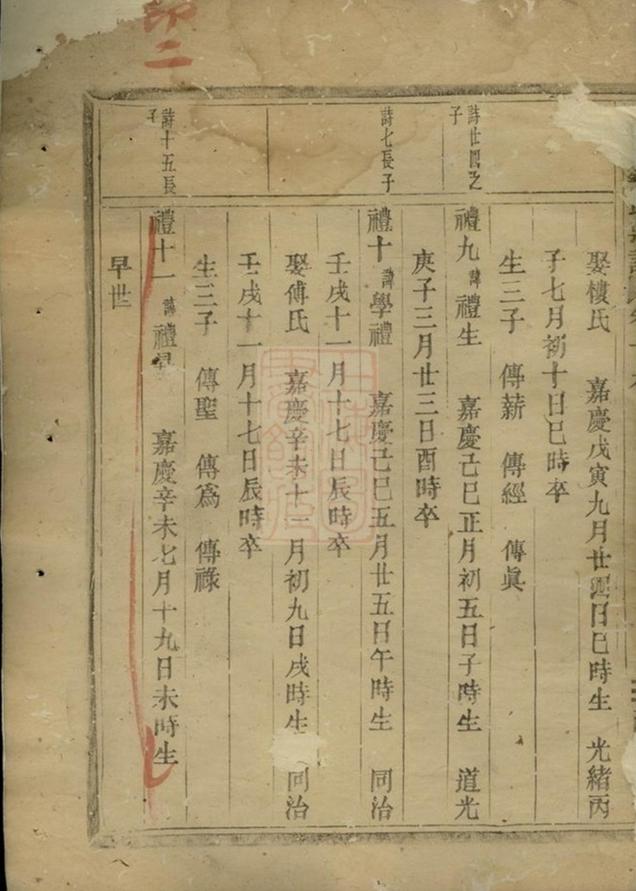 印二
娶樓氏 嘉慶戊寅九月廿四日巳時生 光緒丙
子七月初十日巳時卒
生三子 傳薪 傳經 傳眞
詩廿四之子
禮九 諱禮生 嘉慶己巳正月初五日子時生 道光
庚子三月廿三日酉時卒
詩七長子
禮十 諱學禮 嘉慶己巳五月廿五日午時生 同治
壬戌十一月十七日辰時卒
娶傅氏 嘉慶辛未十二月初九日戌時生 同治
壬戌十一月十七日辰時卒
生三子 傳聖 傳為 傳祿
詩十五長子
禮十一 諱禮 嘉慶辛未七月十九日未時生
早世